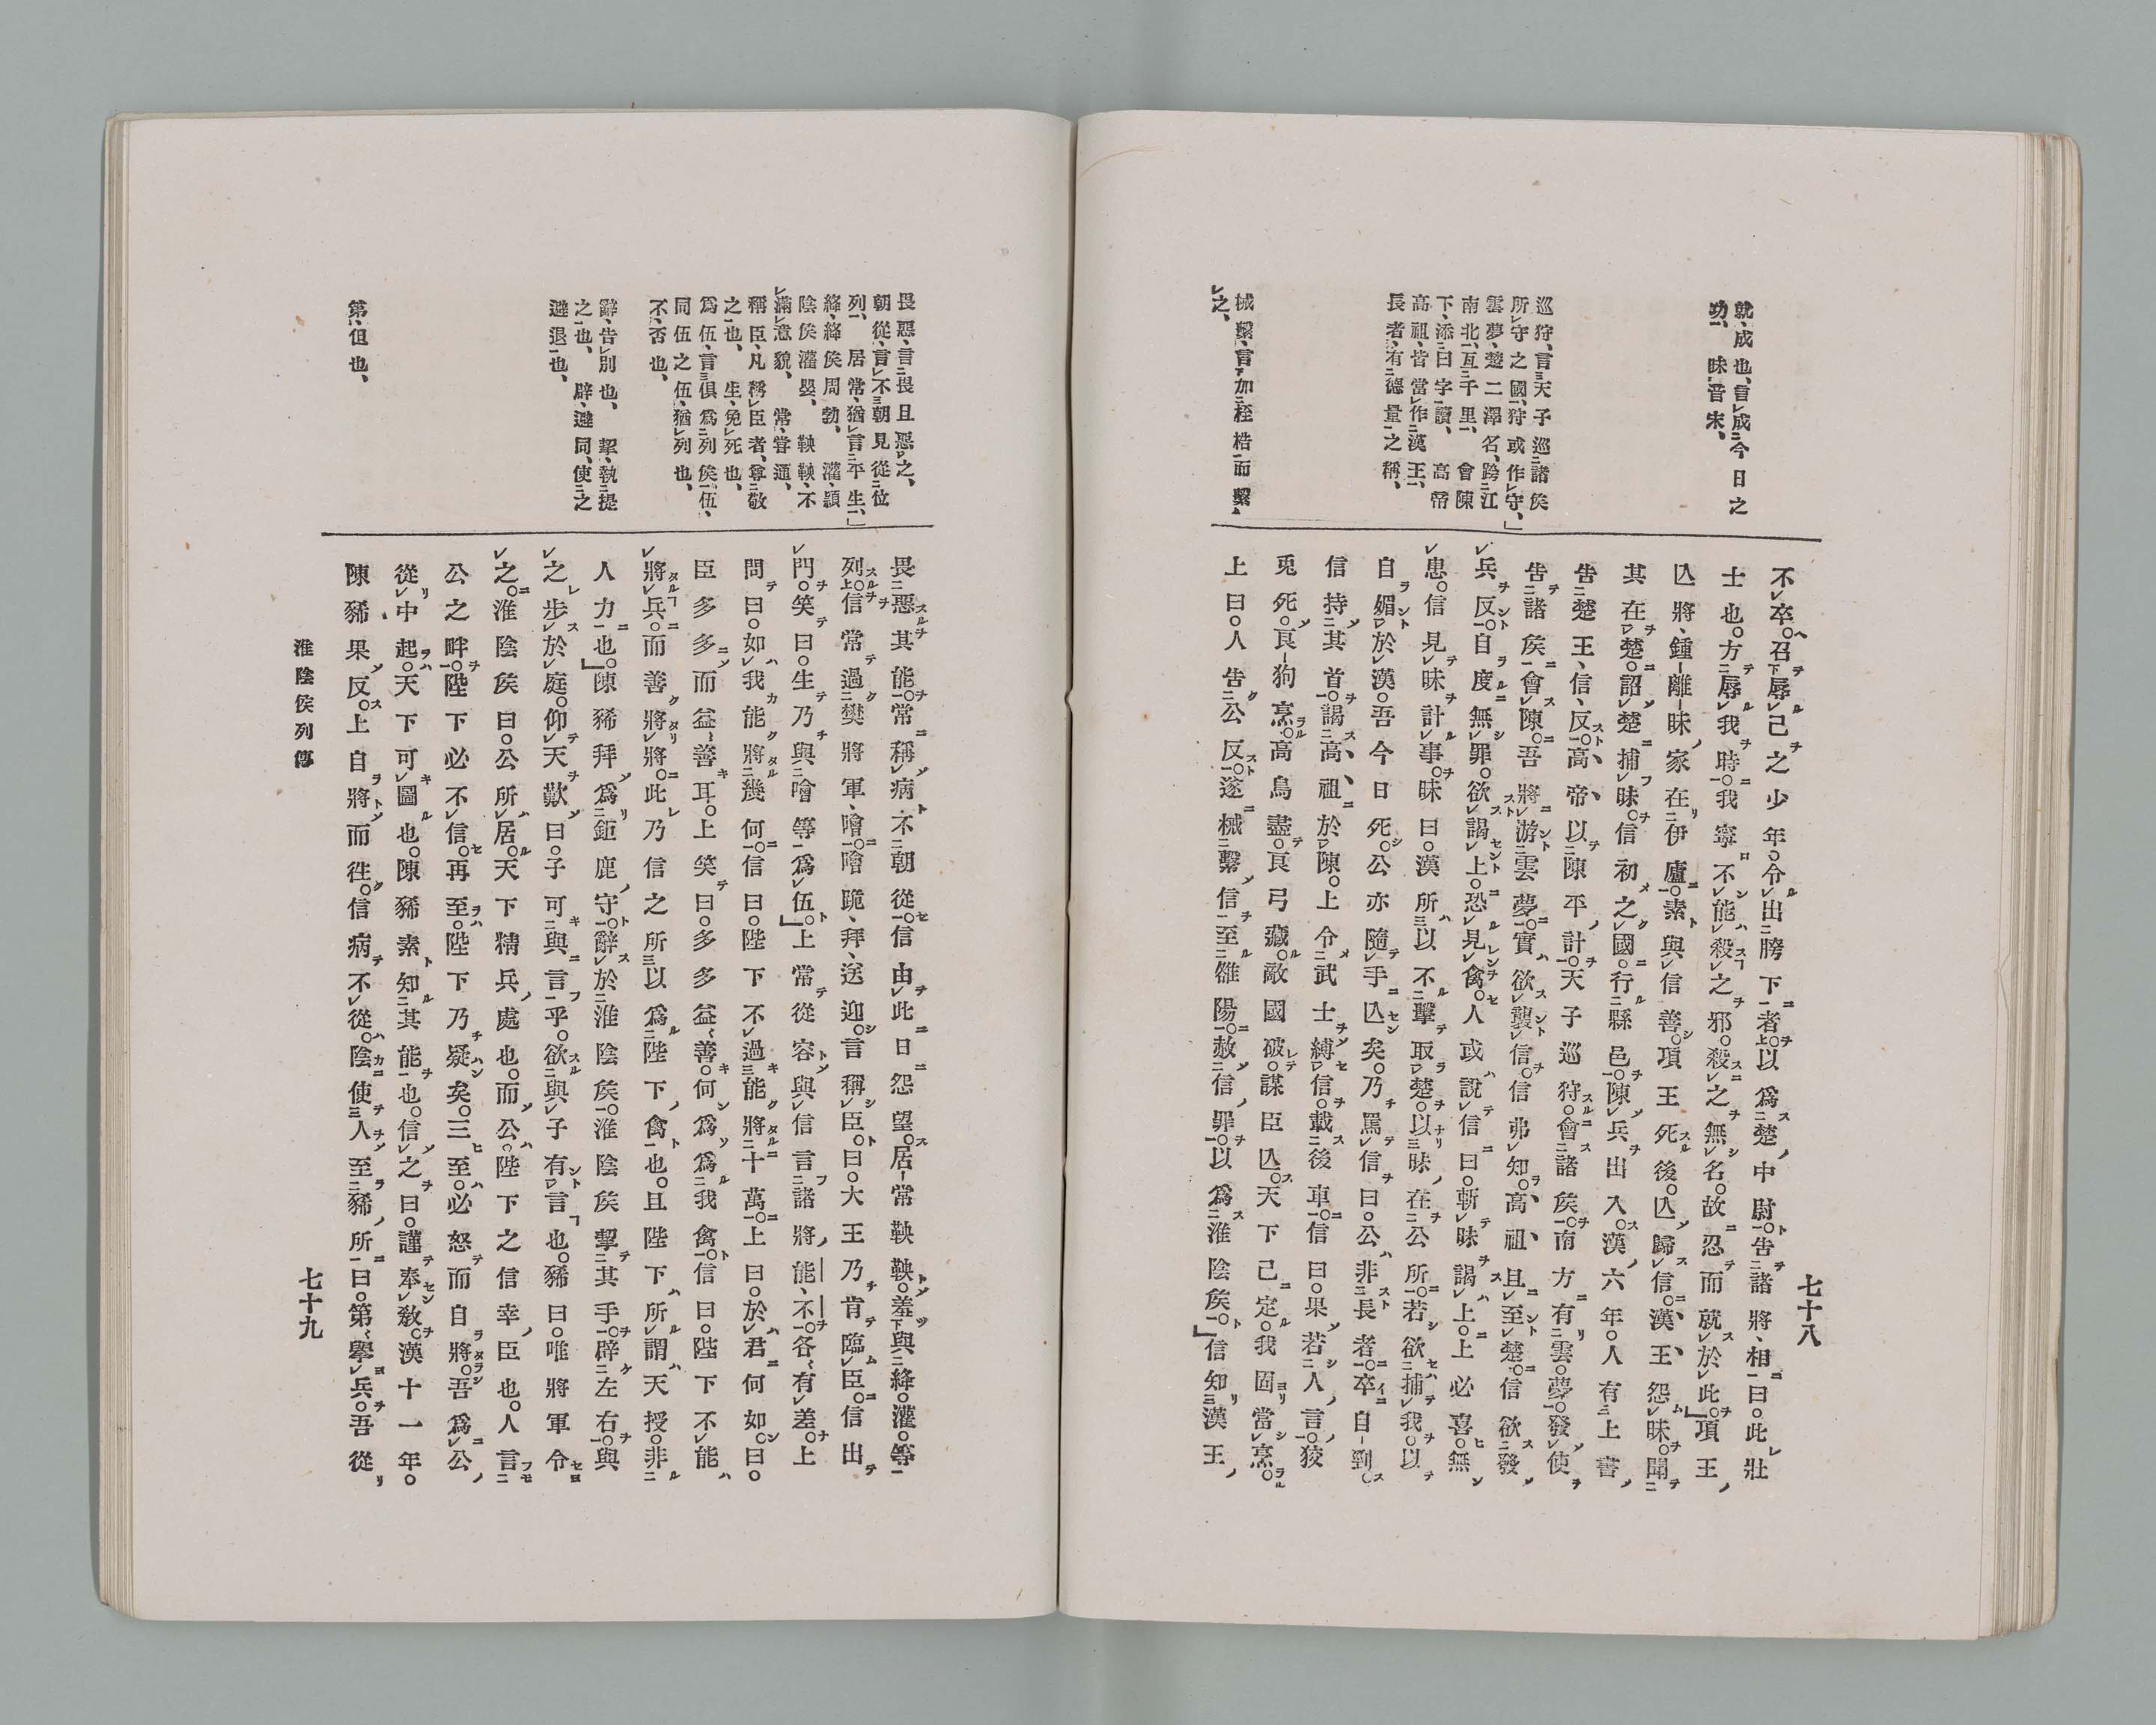 就、成也、言成今日之
功、 昧音宋、
巡狩、言天子巡諸矦
所守之國、狩或作守、」
雲夢、楚二澤名、跨江
南北、亙千里、 會陳
下、添曰字讀、 高帝
高祖、皆當作漢王、
長者、有德量之稱、
械繫、言加桎梏而繫
之、
不卒。召辱己之少年。令出胯下者。以爲楚中尉。告諸將、相曰。此壯
士也。方辱我時。我寧不能殺之邪。殺之無名。故忍而就於此。」項王
亾將、鍾離昧家在伊廬。素與信善。項王死後。亾歸信。漢王怨昧。聞
其在楚。詔楚捕昧。信初之國。行縣邑。陳兵出入。漢六年。人有上書
告楚王、信、反。高帝以陳平計。天子巡狩。會諸矦。南方有雲夢。發使
告諸矦。會陳。吾將游雲夢。實欲襲信。信弗知。高祖且至楚。信欲發
兵反。自度無罪。欲謁上。恐見禽。人或說信曰。斬昧謁上。上必喜。無
患。信見昧計事。昧曰。漢所以不擊取楚。以昧在公所。若欲捕我。以
自媚於漢。吾今日死。公亦隨手亾矣。乃罵信曰。公非長者。卒自剄。
信持其首。謁高祖於陳。上令武士縛信。載後車。信曰。果若人言。狡
兎死。良狗烹。高鳥盡。良弓藏。敵國破。謀臣亾。天下已定。我固當烹。
上曰。人告公反。遂械繫信。至雒陽。赦信罪。以爲淮陰矦。」信知漢王
七十八
畏惡、言畏且惡之、
朝從、言不朝見從位
列、 居常、猶言平生、」
絳、絳矦周勃、 灌、潁
陰矦灌嬰、 鞅鞅、不
滿意貌、 常、嘗通、
稱臣、凡稱臣者、尊敬
之也、 生、免死也、
爲伍、言俱爲列矦伍、
同伍之伍、猶列也、
不、否也、
辭、告別也、 挈、執提
之也、 辟、避同、使之
避退也、
第、但也、
畏惡其能。常稱病不朝從。信由此日怨望。居常鞅鞅。羞與絳。灌。等
列。信常過樊將軍、噲。噲跪、拜、送迎。言稱臣。曰。大王乃肯臨臣。信出
門。笑曰。生乃與噲等爲伍。」上常從容與信言諸將能、不。各有差。上
問曰。如我能將幾何。信曰。陛下不過能將十萬。上曰。於君何如。曰。
臣多多而益善耳。上笑曰。多多益善。何爲爲我禽。信曰。陛下不能
將兵。而善將將。此乃信之所以爲陛下禽也。且陛下所謂天授。非
人力也。」陳豨拜爲鉅鹿守。辭於淮陰矦。淮陰矦挈其手。辟左右。與
之步於庭。仰天歎曰。子可與言乎。欲與子有言也。豨曰。唯將軍令
之。淮陰矦曰。公所居。天下精兵處也。而公。陛下之信幸臣也。人言
公之畔。陛下必不信。再至。陛下乃疑矣。三至。必怒而自將。吾爲公
從中起。天下可圖也。陳豨素知其能也。信之曰。謹奉敎。漢十一年。
陳豨果反。上自將而往。信病不從。陰使人至豨所曰。第擧兵。吾從
淮陰侯列傳
七十九